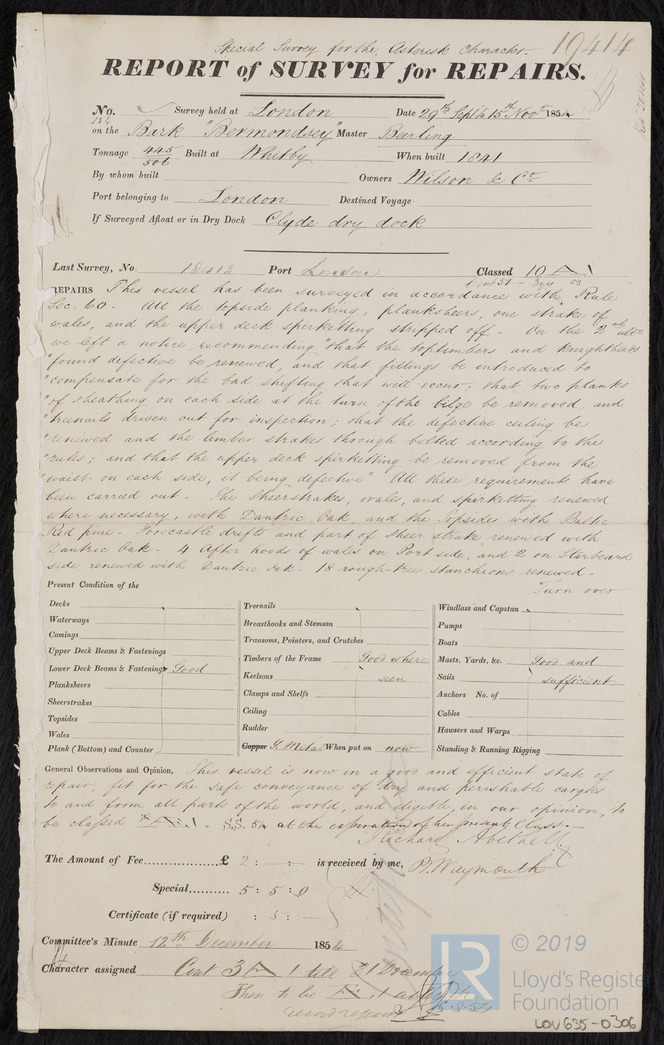 Special Survey for the Asterisk Character
19414
REPORT of SURVEY for REPAIRS.
No. Survey held at London Date 29th Septr to 15th Novr 1854
on the Bark "Bermondsey" Master Burling
Tonnage 445 Built at Whitby When built 1841
506
By whom built Owners Wilson & Co
Port belonging to London Destined Voyage
If Surveyed Afloat or in Dry Dock Clyde dry dock
Last Survey, No. Port London Classed 10 A 1
REPAIRS This vessel has been surveyed in accordance with Rule
Sec. 60 - All the topside planking, planksheers, one strake of
wales, and the upper deck spirketting stripped off. On the 2nd ult
we left a notice recommending "that the toptimbers and Knightheads
"found defective be renewed, and that fillings be introduced to
"compensate for the bad shifting that will occur; that two planks
"of sheathing on each side at the turn of the bilge be removed, and
"treenails driven out for inspection; that the defective ceiling be
"renewed and the limber strakes through bolted according to the
"rules; and that the upper deck spirketting be removed from the
"waist on each side, it being defective" All these requirements have
been carried out - The sheerstrakes, wales, and spirketting renewed
where necessary, with Dantzic Oak, and the topsides with Baltic
Red pine - Forecastle drifts and part of sheer strake renewed with
Dantzic Oak - 4 After hoods of wales on Port side, and 2 on Starboard
side renewed with Dantzic Oak - 18 rough-tree stancheons renewed -
Turn over
Present Condition of the
Decks
Waterways
Comings
Upper Deck Beams & Fastenings
Lower Deck Beams & Fastenings Good
Planksheers
Sheerstrakes
Topsides
Wales
Plank (Bottom) and Counter
Treenails
Breasthooks and Stemson
Transoms, Pointers, and Crutches
Timbers of the Frame Good where
Keelsons seen
Clamps and Shelfs
Ceiling
Rudder
Copper Y. Metal When put on now
Windlass and Capstan
Pumps
Boats
Masts, Yards, &c. Good and
Sails sufficient
Anchors No. of
Cables
Hawsers and Warps
Standing & Running Rigging
General Observations and Opinion, This vessel is now in a good and efficient state of
repair, fit for the safe conveyance of dry and perishable cargoes
to and from all parts of the world, and eligible, in our opinion, to
be classed *A 1. SS. 54 at the expiration of her present Class.
Richard Abethell
The Amount of Fee £ 2 : - : - is received by me, B. Waymouth
Special 5 : 5 : 0
Certificate (if required) : 5 : -
Committee's Minute 12th December 1854
Character assigned Cont 3 A 1 till
Then to be A 1
record repairs
© 2019
LR
Lloyd's Register
Foundation
LOV635-0306